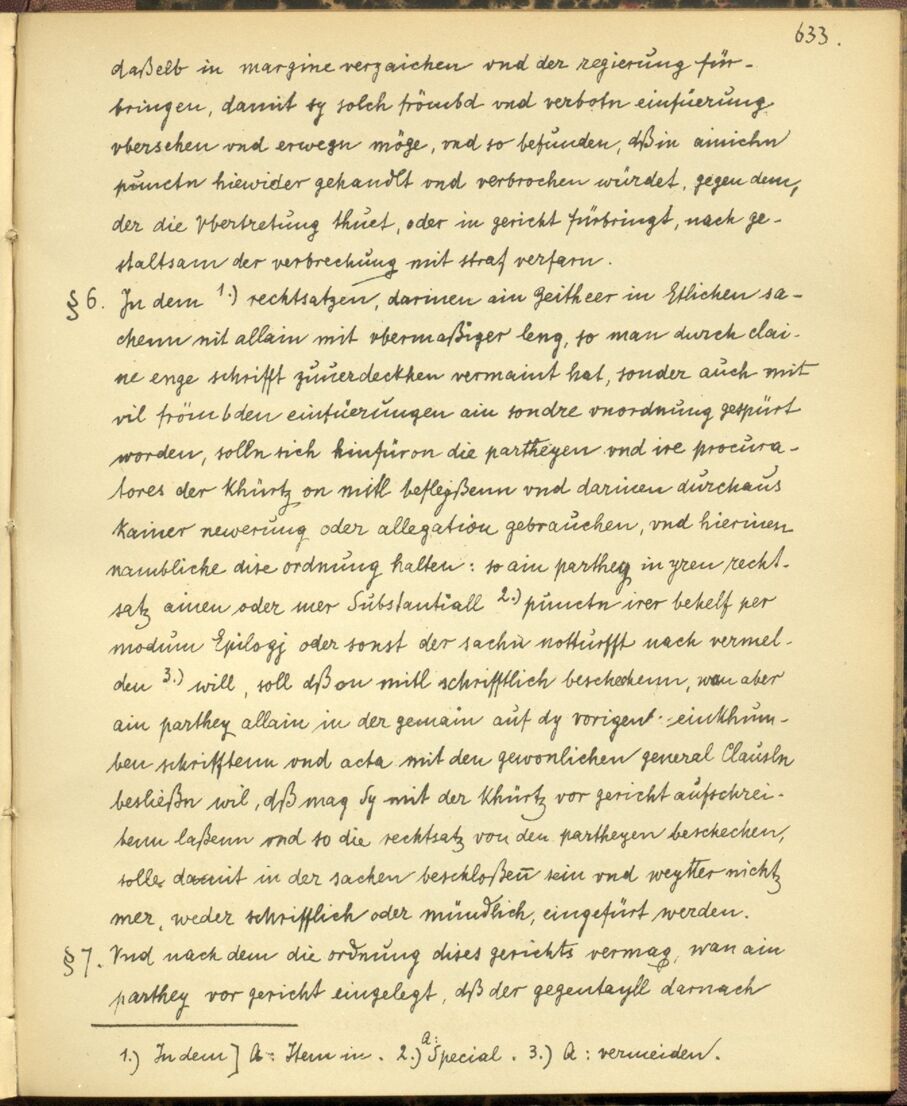 633.
daßelb in margine verzaichen vnd der regierung für-
bringen, damit sy solch frömbd vnd verbotn einfüerung
vbersehen vnd erwegn möge, vnd so befunden, dß in ainichn
punctn hiewider gehandlt vnd verbrochen würdet, gegen dem,
der die Vbertretung thuet, oder in gericht fürbringt, nach ge-
staltsam der verbrechung mit straf verfarn.
§ 6. In dem 1.) rechtsatzen, darinen ain Zeitheer in Etlichen sa-
chenn nit allain mit vbermaßiger leng, so man durch clai-
ne enge schrifft zuuerdeckhen vermaint hat, sonder auch mit
vil frömbden einfüerungen ain sondre vnordnung gespürt
worden, solln sich hinfüron die partheyen vnd ire procura-
tores der Khürtz on mitl befleyßenn vnd darinen durchaus
kainer newerung oder allegation gebrauchen, vnd hierinen
nambliche dise ordnung halten: so ain parthey in yren recht-
satz ainen oder mer Substantiall 2.) punctn irer behelf per
modum Epilogj oder sonst der sachn notturfft nach vermel-
den 3.) will, soll dß on mitl schrifftlich beschehenn, wan aber
ain parthey allain in der gemain auf dy vorigen einkhum-
ben schrifftenn vnd acta mit den gewonlichen general Clausln
besließn wil, dß mag Sy mit der Khürtz vor gericht aufschrei-
benn laßenn vnd so die rechtsatz von den partheyen beschechen,
solle damit in der sachen beschloßen̄ sein vnd weytter nichtz
mer, weder schrifflich oder mündlich, eingefürt werden.
§ 7. Vnd nach dem die ordnung dises gerichts vermag, wan ain
parthey vor gericht eingelegt, dß der gegentayll darnach
1.) In dem] A: Item in. 2.) A: Special. 3.) A: vermeiden.